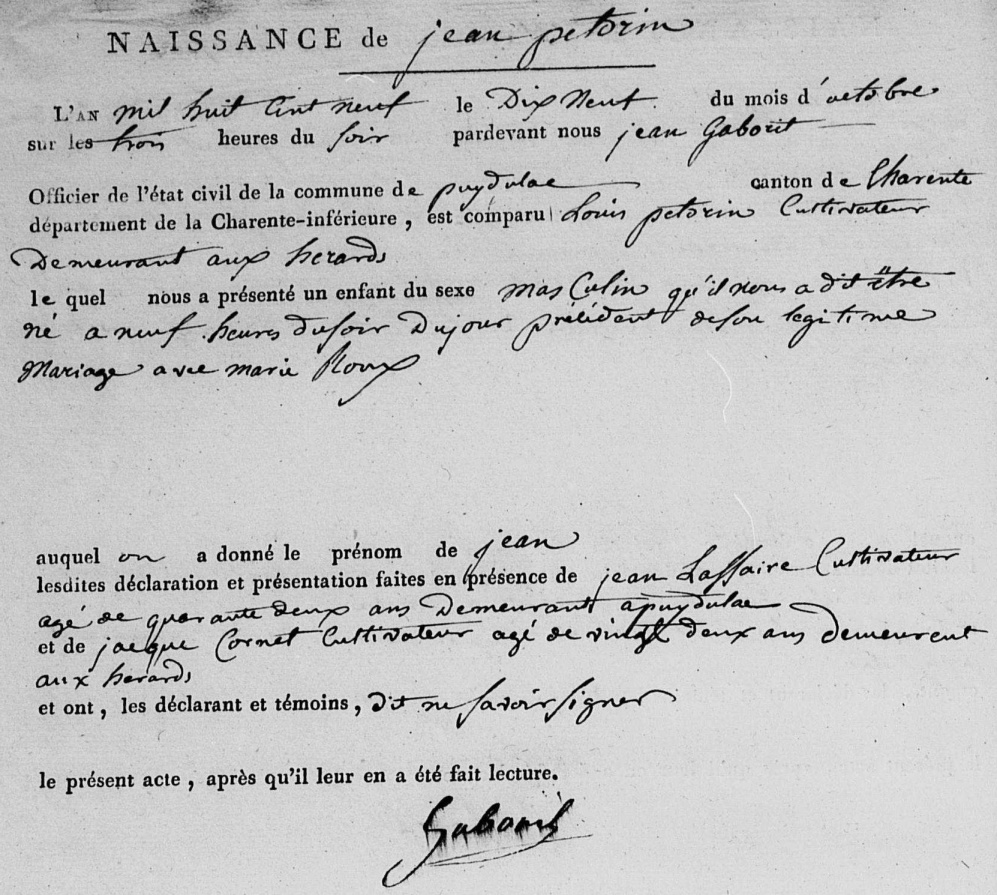 NAISSANCE de jean petorin
L'AN mil huit Cent neuf le Dix Neuf du mois d'octobre
sur les trois heures du soir pardevant nous jean Gaborit
Officier de l'état civil de la commune de puydulac canton de Charente
département de la Charente-inférieure, est comparu Louis petorin Cultivateur
Demeurant aux herards
le quel nous a présenté un enfant du sexe masCulin qu'il nous a dit être
né a neuf heures du soir Du jour présédent de son legitime
Mariage avec marie Roux
auquel on a donné le prénom de jean
lesdites déclaration et présentation faites en présence de jean Laffaire Cultivateur
agé de quarante deux ans Demeurant a puydulac
et de jacque Cornet Cultivateur agé de vingt deux ans demeurent
aux herards
et ont, les déclarant et témoins, dit ne savoir signer
le présent acte, après qu'il leur en a été fait lecture.
Gaborit